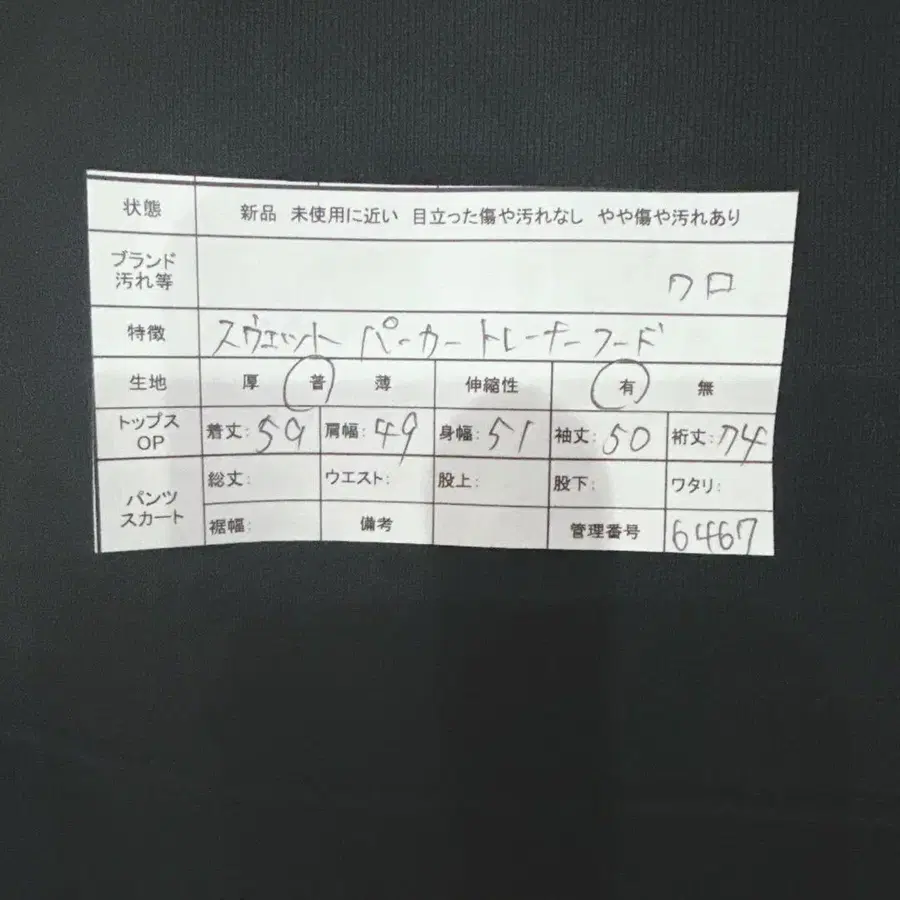 状態 新品 未使用に近い 目立った傷や汚れなし やや傷や汚れあり
ブランド
汚れ等 クロ
特徴 スウェット パーカー トレーナー フード
生地 厚 普 薄 伸縮性 有 無
トップス
OP 着丈:59 肩幅:49 身幅:51 袖丈:50 裄丈:74
パンツ
スカート 総丈: ウエスト: 股上: 股下: ワタリ:
裾幅: 備考 管理番号 6467